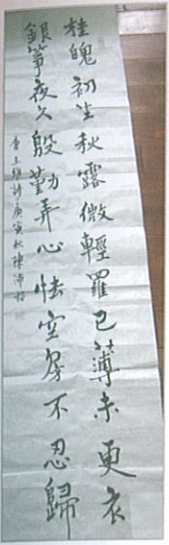 桂魄初生秋露微輕羅已薄未更衣
銀箏夜久殷勤弄心怯空房不忍歸
唐王維詩庚寅秋陳沛